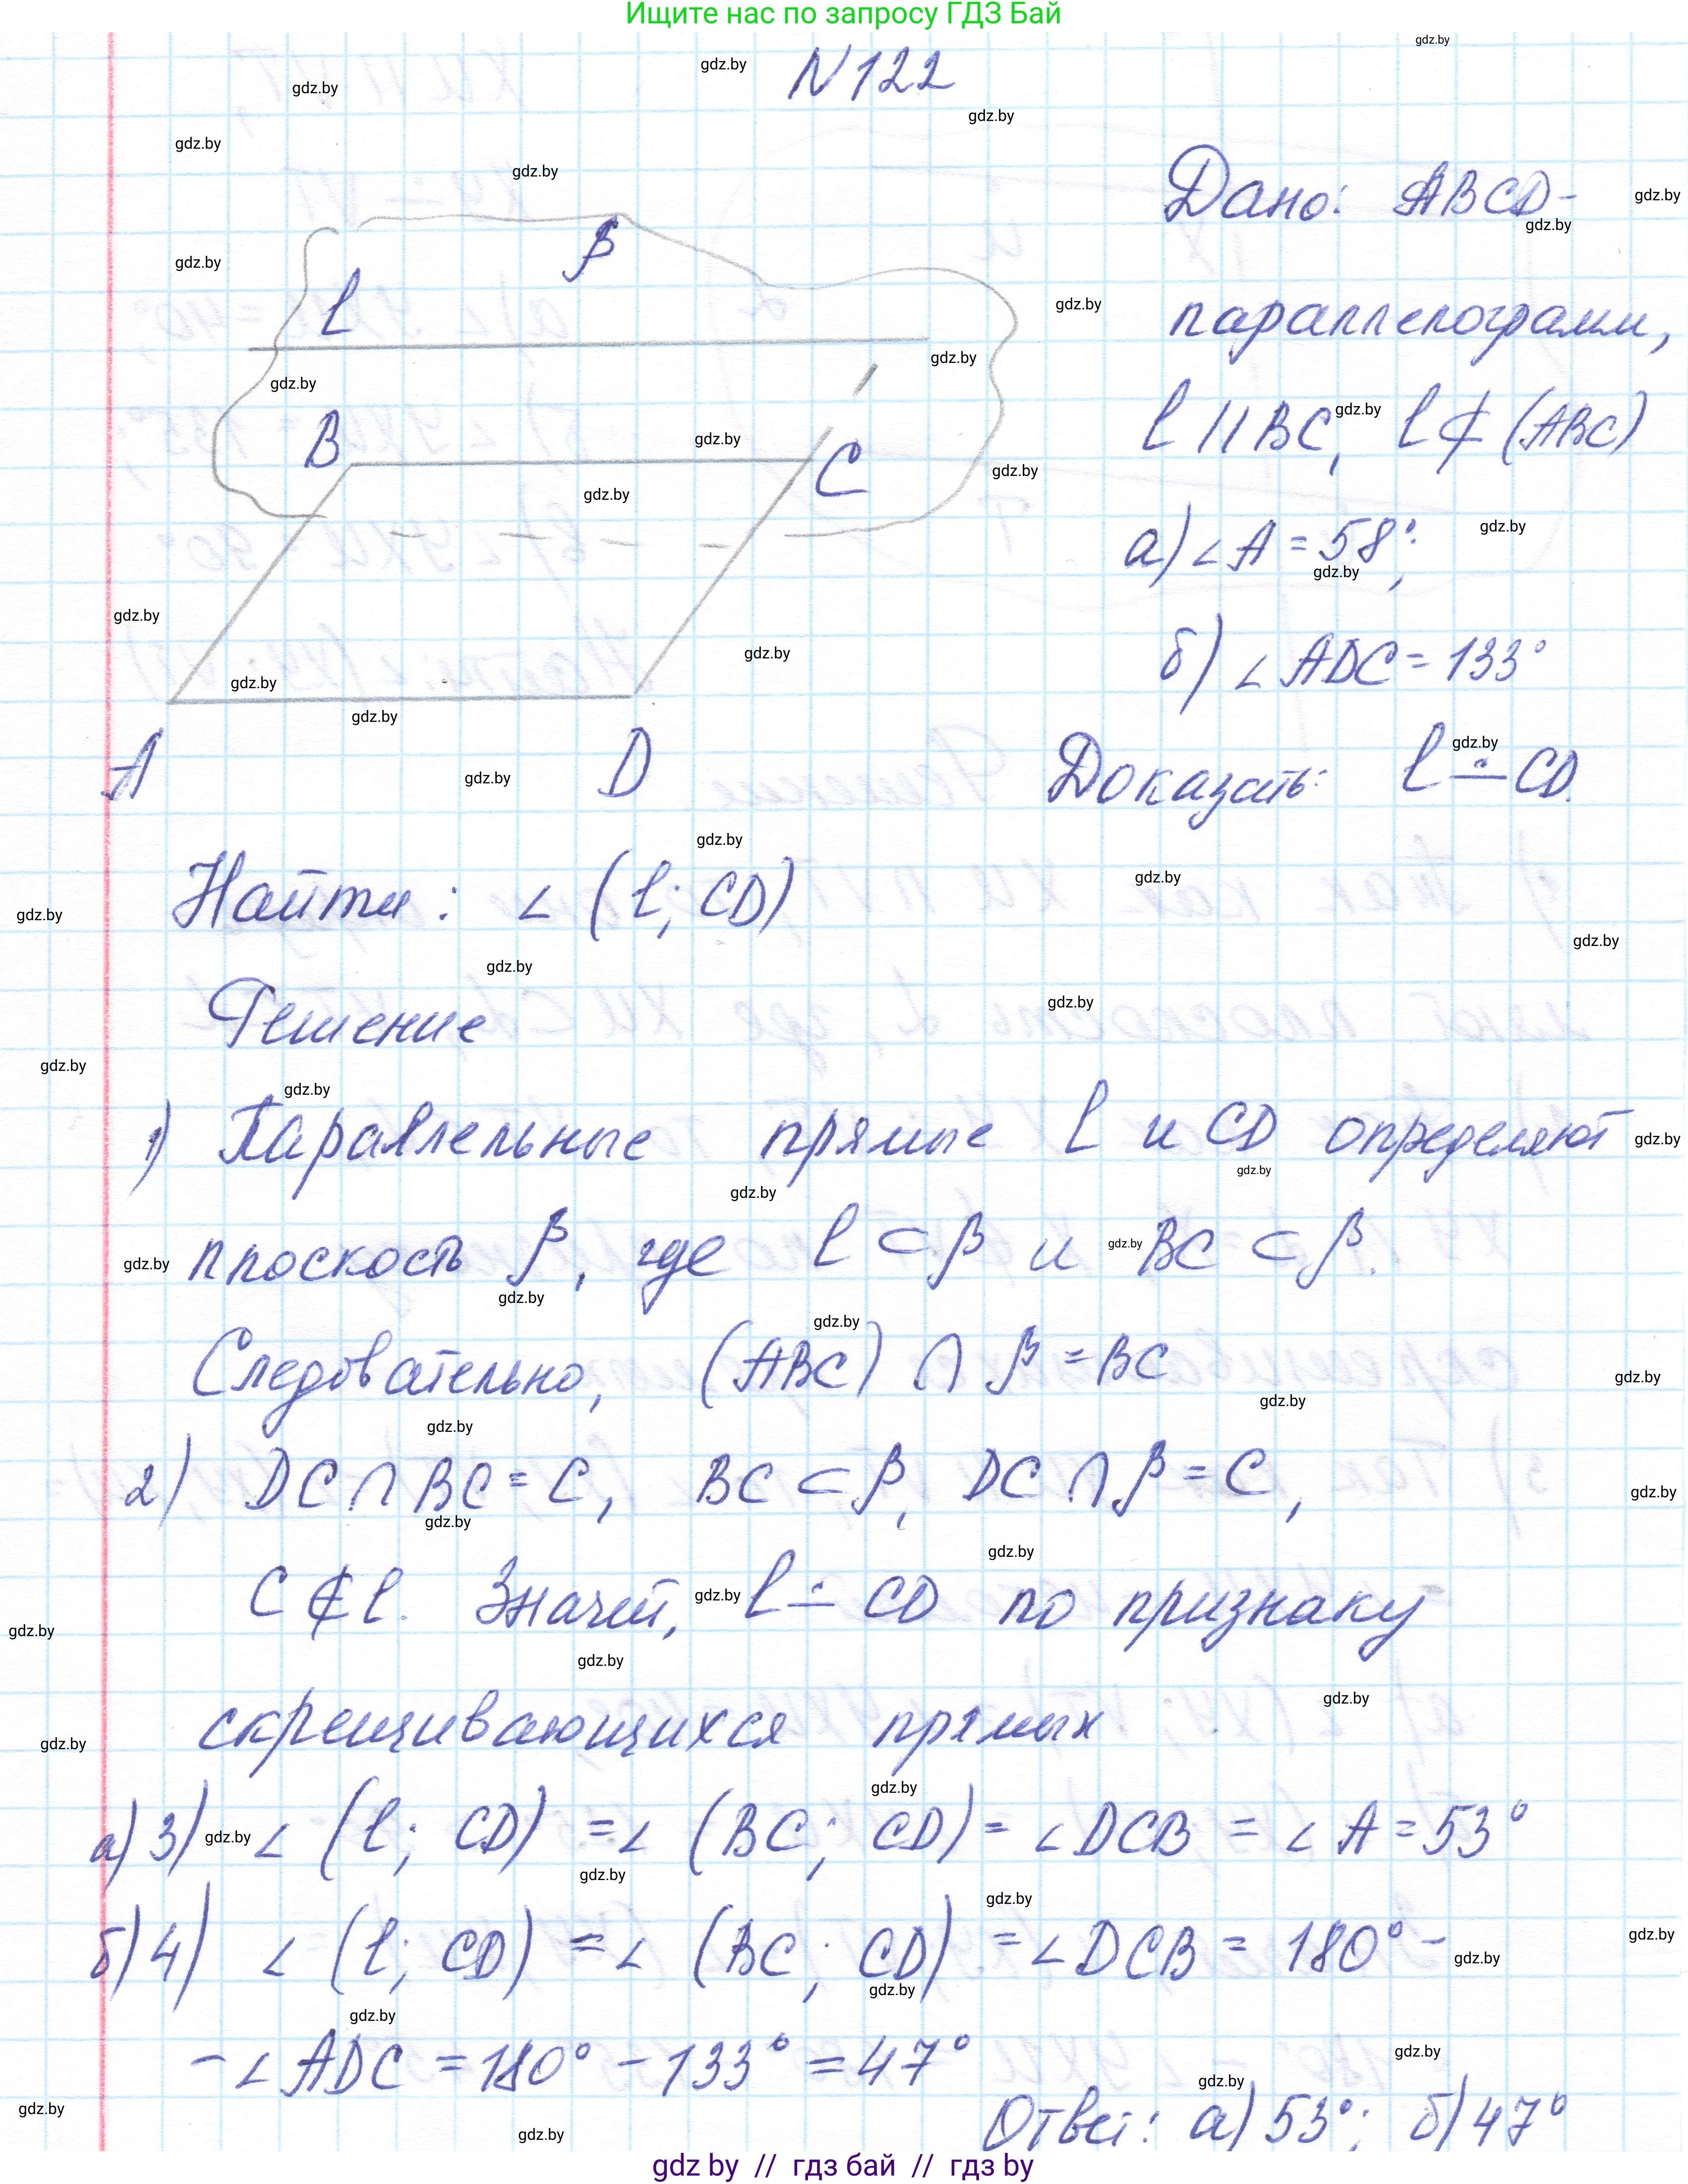 Ищите нас по запросу ГДЗ Бай
N 122
Дано: ABCD-
параллелограмм,
l || BC, l ⊄ (ABC)
а) ∠A = 58°;
б) ∠ADC = 133°
Доказать: l ∸ CD.
β
l
B
C
A
D
Найти: ∠ (l; CD)
Решение
1) Параллельные прямые l и CD определяют
плоскость β, где l ⊂ β и BC ⊂ β.
Следовательно, (ABC) ∩ β = BC
2) DC ∩ BC = C, BC ⊂ β, DC ∩ β = C,
C ∉ l. Значит, l ∸ CD по признаку
скрещивающихся прямых
а) 3) ∠ (l; CD) = ∠ (BC; CD) = ∠DCB = ∠A = 53°
б) 4) ∠ (l; CD) = ∠ (BC; CD) = ∠DCB = 180° -
- ∠ADC = 180° - 133° = 47°
Ответ: а) 53°; б) 47°
gdz by // гдз бай // гдз by